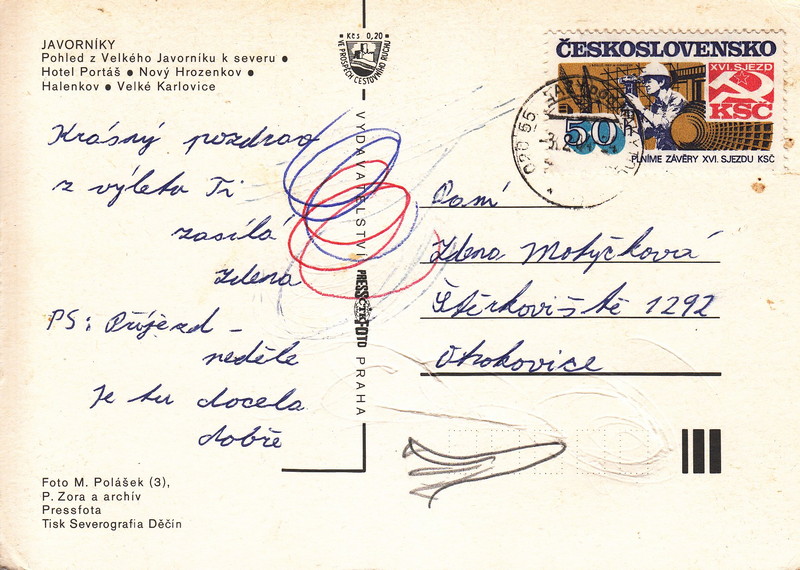 JAVORNÍKY
Pohled z Velkého Javorníku k severu ●
Hotel Portáš ● Nový Hrozenkov ●
Halenkov ● Velké Karlovice
Krásný pozdrav
z výletu Ti
zasílá
Zdena
PS: Příjezd -
neděle
Je tu docela
dobře
Foto M. Polášek (3),
P. Zora a archív
Pressfota
Tisk Severografia Děčín
Kčs 0,20
VE PROSPĚCH CESTOVNÍHO RUCHU
VYDAVATELSTVÍ
PRESSFOTO
ČTK
PRAHA
ČESKOSLOVENSKO
XVI. SJEZD
KSČ
50
PLNÍME ZÁVĚRY XVI. SJEZDU KSČ
020 55
Paní
Zdena Motyčková
Štěrkoviště 1292
Otrokovice